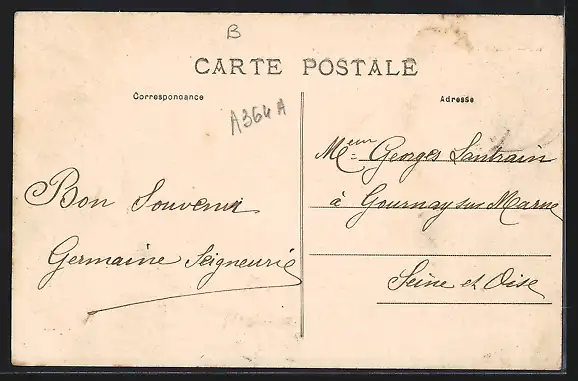 B
CARTE POSTALE
Correspondance
Adresse
A364A
Bon Souvenir
Germaine Seigneurié
Meur Georges Lantrain
à Gournay sur Marne
Seine et Oise